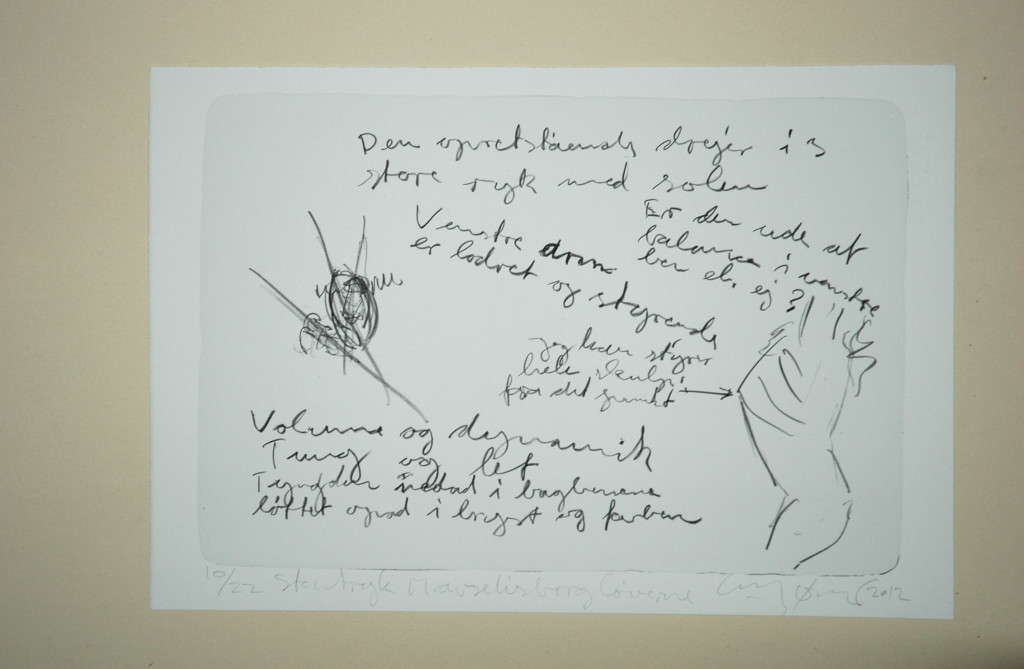 Den opretstående drejer i 3
store ryk med solen
Er den ude af
balance i venstre
ben el. ej?
Venstre arm
er lodret og styrende
jeg kan styre
hele skulpt.
fra det punkt
Volume og dynamik
Tung og let
Tyngden nedad i bagbenene
løftet opad i bryst og forben
10/22 Stentryk Marselisborg løverne 2012